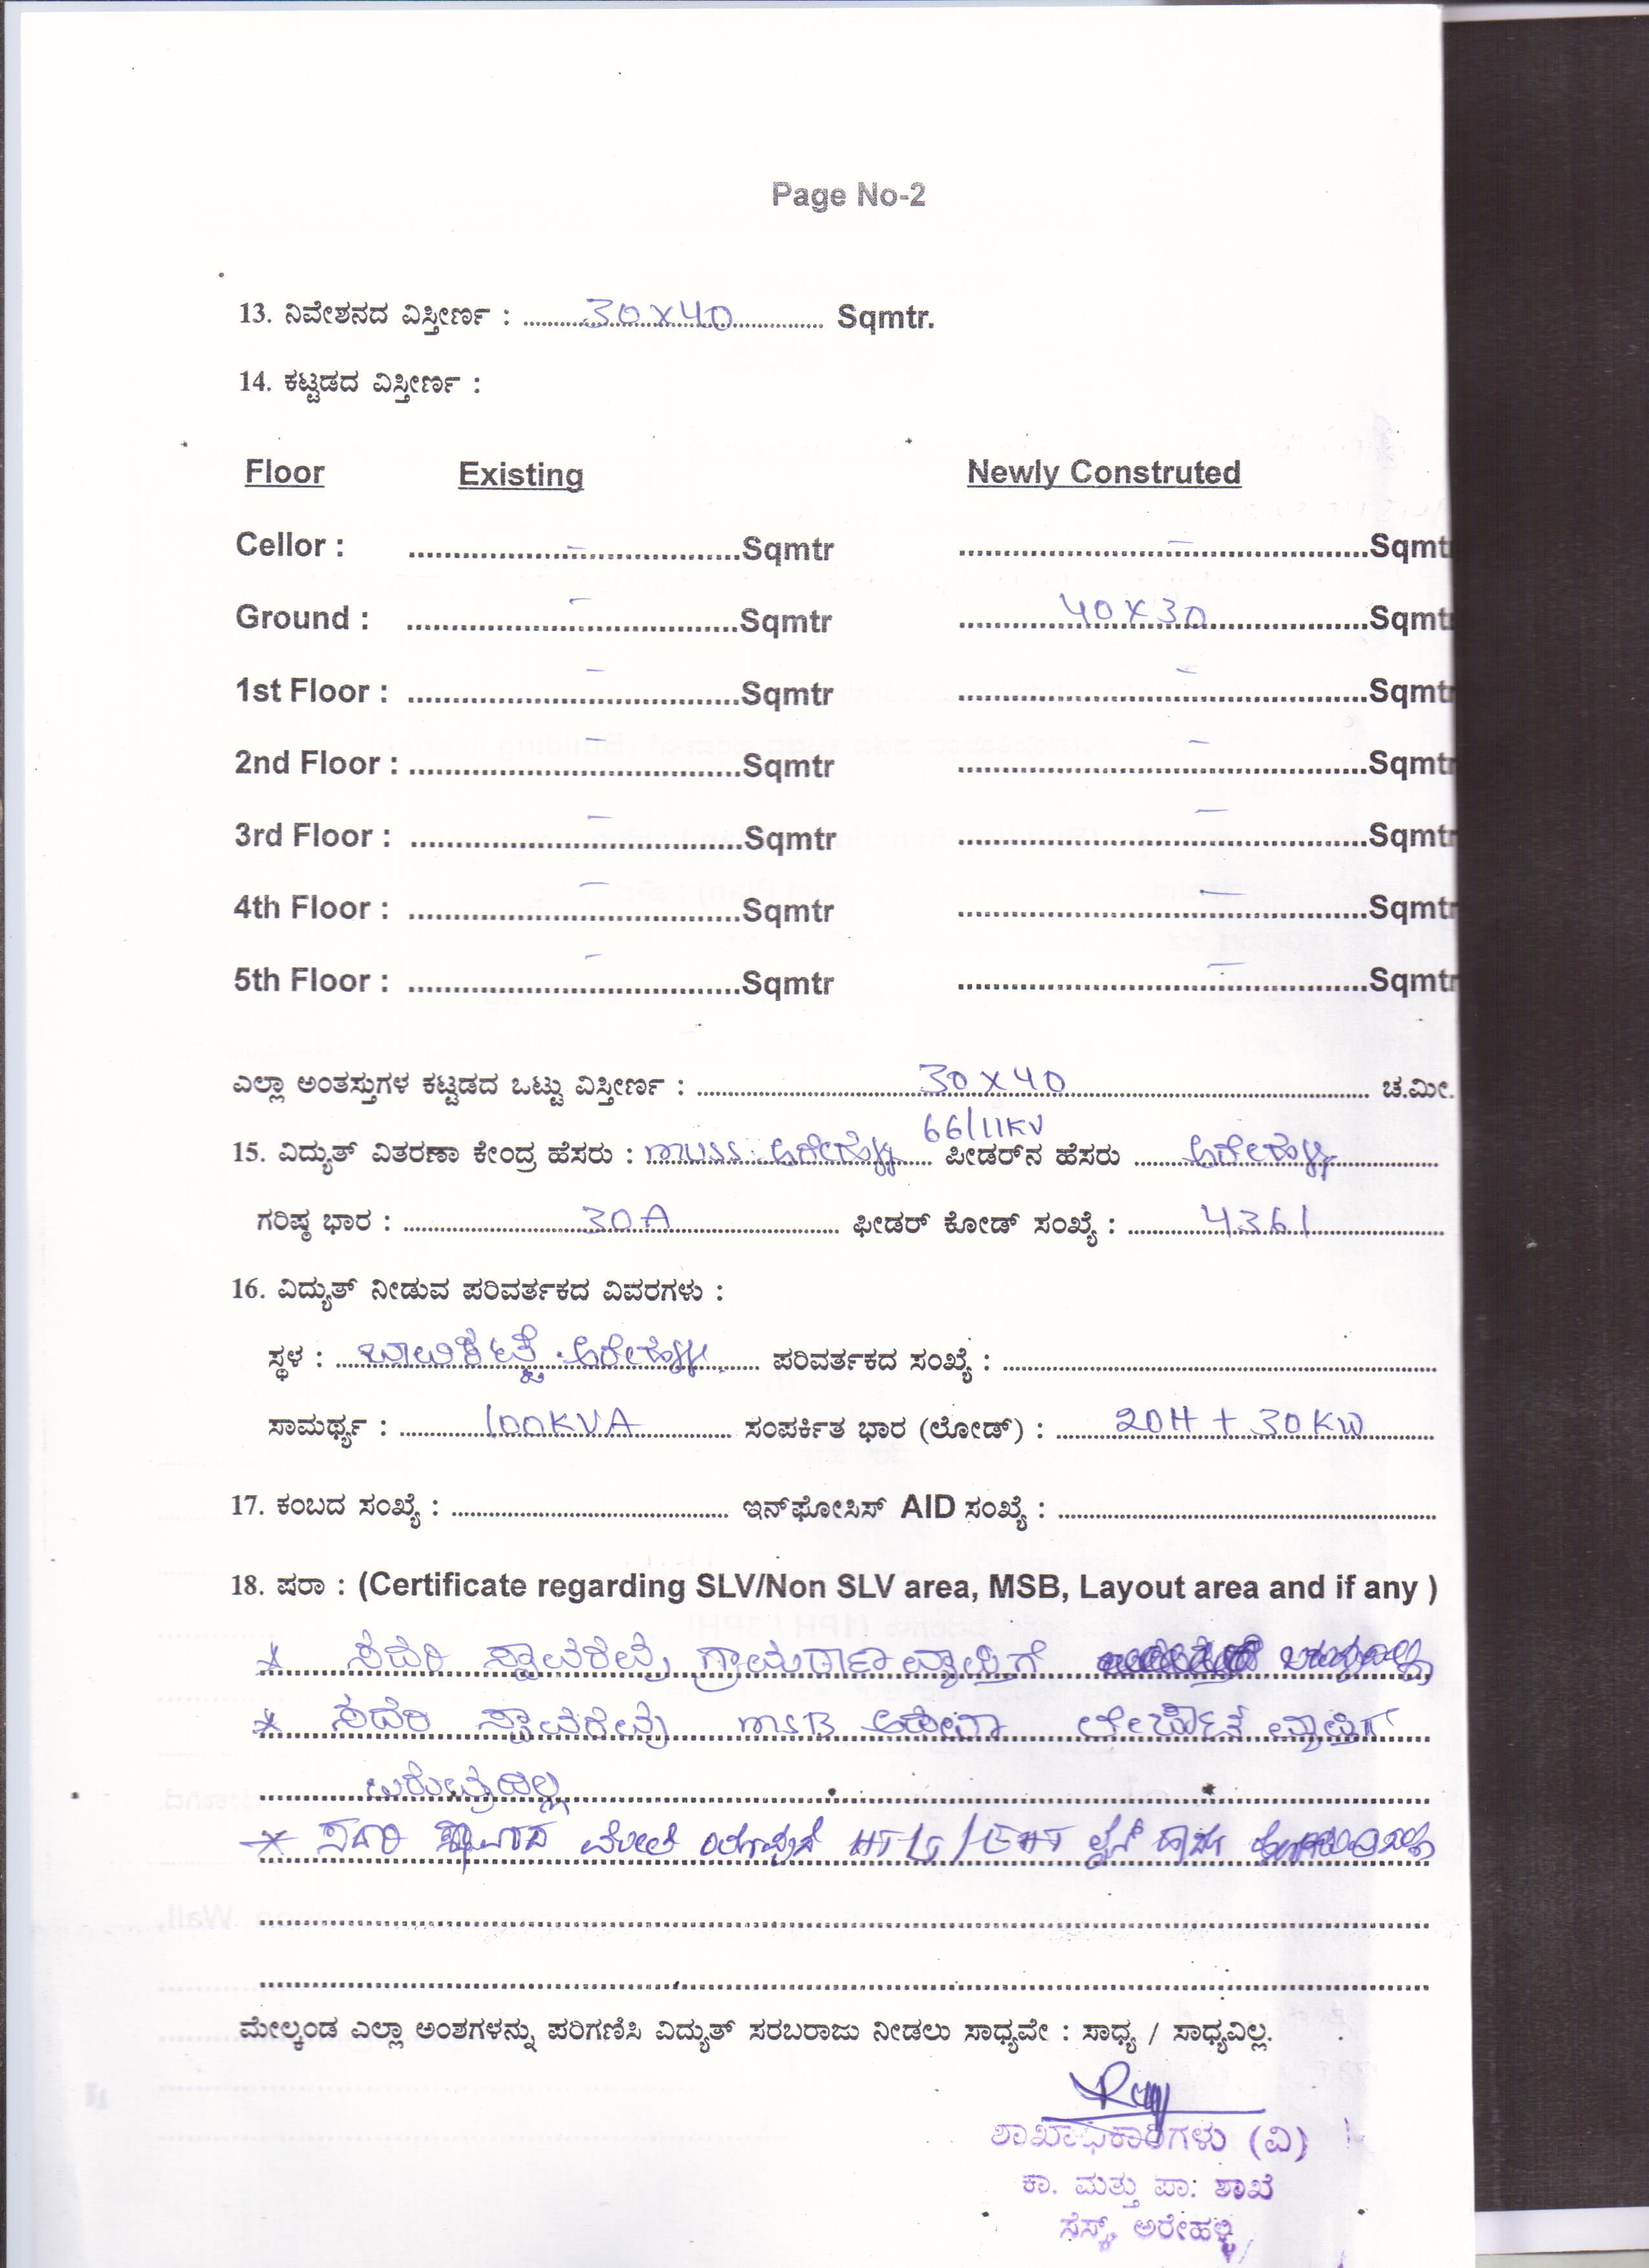 Page No-2
13. ನಿವೇಶನದ ವಿಸ್ತೀರ್ಣ : 30x40 Sqmtr.
14. ಕಟ್ಟಡದ ವಿಸ್ತೀರ್ಣ :
Floor Existing Newly Construted
Cellor : - Sqmtr - Sqmtr
Ground : - Sqmtr 40x30 Sqmtr
1st Floor : - Sqmtr - Sqmtr
2nd Floor : - Sqmtr - Sqmtr
3rd Floor : - Sqmtr - Sqmtr
4th Floor : - Sqmtr - Sqmtr
5th Floor : - Sqmtr - Sqmtr
ಎಲ್ಲಾ ಅಂತಸ್ತುಗಳ ಕಟ್ಟಡದ ಒಟ್ಟು ವಿಸ್ತೀರ್ಣ : 30x40 ಚ.ಮೀ.
66/11KV
15. ವಿದ್ಯುತ್ ವಿತರಣಾ ಕೇಂದ್ರ ಹೆಸರು : MUSS ಅರೇಹಳ್ಳಿ ಪೀಡರ್‌ನ ಹೆಸರು ಅರೇಹಳ್ಳಿ
ಗರಿಷ್ಠ ಭಾರ : 30A ಫೀಡರ್ ಕೋಡ್ ಸಂಖ್ಯೆ : 4361
16. ವಿದ್ಯುತ್ ನೀಡುವ ಪರಿವರ್ತಕದ ವಿವರಗಳು :
ಸ್ಥಳ : ಅರೇಹಳ್ಳಿ. ಪರಿವರ್ತಕದ ಸಂಖ್ಯೆ :
ಸಾಮರ್ಥ್ಯ : 100KVA ಸಂಪರ್ಕಿತ ಭಾರ (ಲೋಡ್) : 20H + 30KW
17. ಕಂಬದ ಸಂಖ್ಯೆ : ಇನ್‌ಫೋಸಿಸ್ AID ಸಂಖ್ಯೆ :
18. ಷರಾ : (Certificate regarding SLV/Non SLV area, MSB, Layout area and if any )
* ಸದರಿ ಸ್ಥಾವರವು ವ್ಯಾಪ್ತಿಗೆ
* ಸದರಿ ಸ್ಥಾವರವು MSB ಅಥವಾ ವ್ಯಾಪ್ತಿಗೆ
ಬರುವುದಿಲ್ಲ
* ಸದರಿ ಸ್ಥಾವರದ ಮೇಲೆ ಯಾವುದೇ HTLG/EHT ಲೈನ್
ಮೇಲ್ಕಂಡ ಎಲ್ಲಾ ಅಂಶಗಳನ್ನು ಪರಿಗಣಿಸಿ ವಿದ್ಯುತ್ ಸರಬರಾಜು ನೀಡಲು ಸಾಧ್ಯವೇ : ಸಾಧ್ಯ / ಸಾಧ್ಯವಿಲ್ಲ.
ಶಾಖಾಧಿಕಾರಿಗಳು (ವಿ)
ಕಾ. ಮತ್ತು ಪಾ: ಶಾಖೆ
ಸೆಸ್ಕ್, ಅರೇಹಳ್ಳಿ